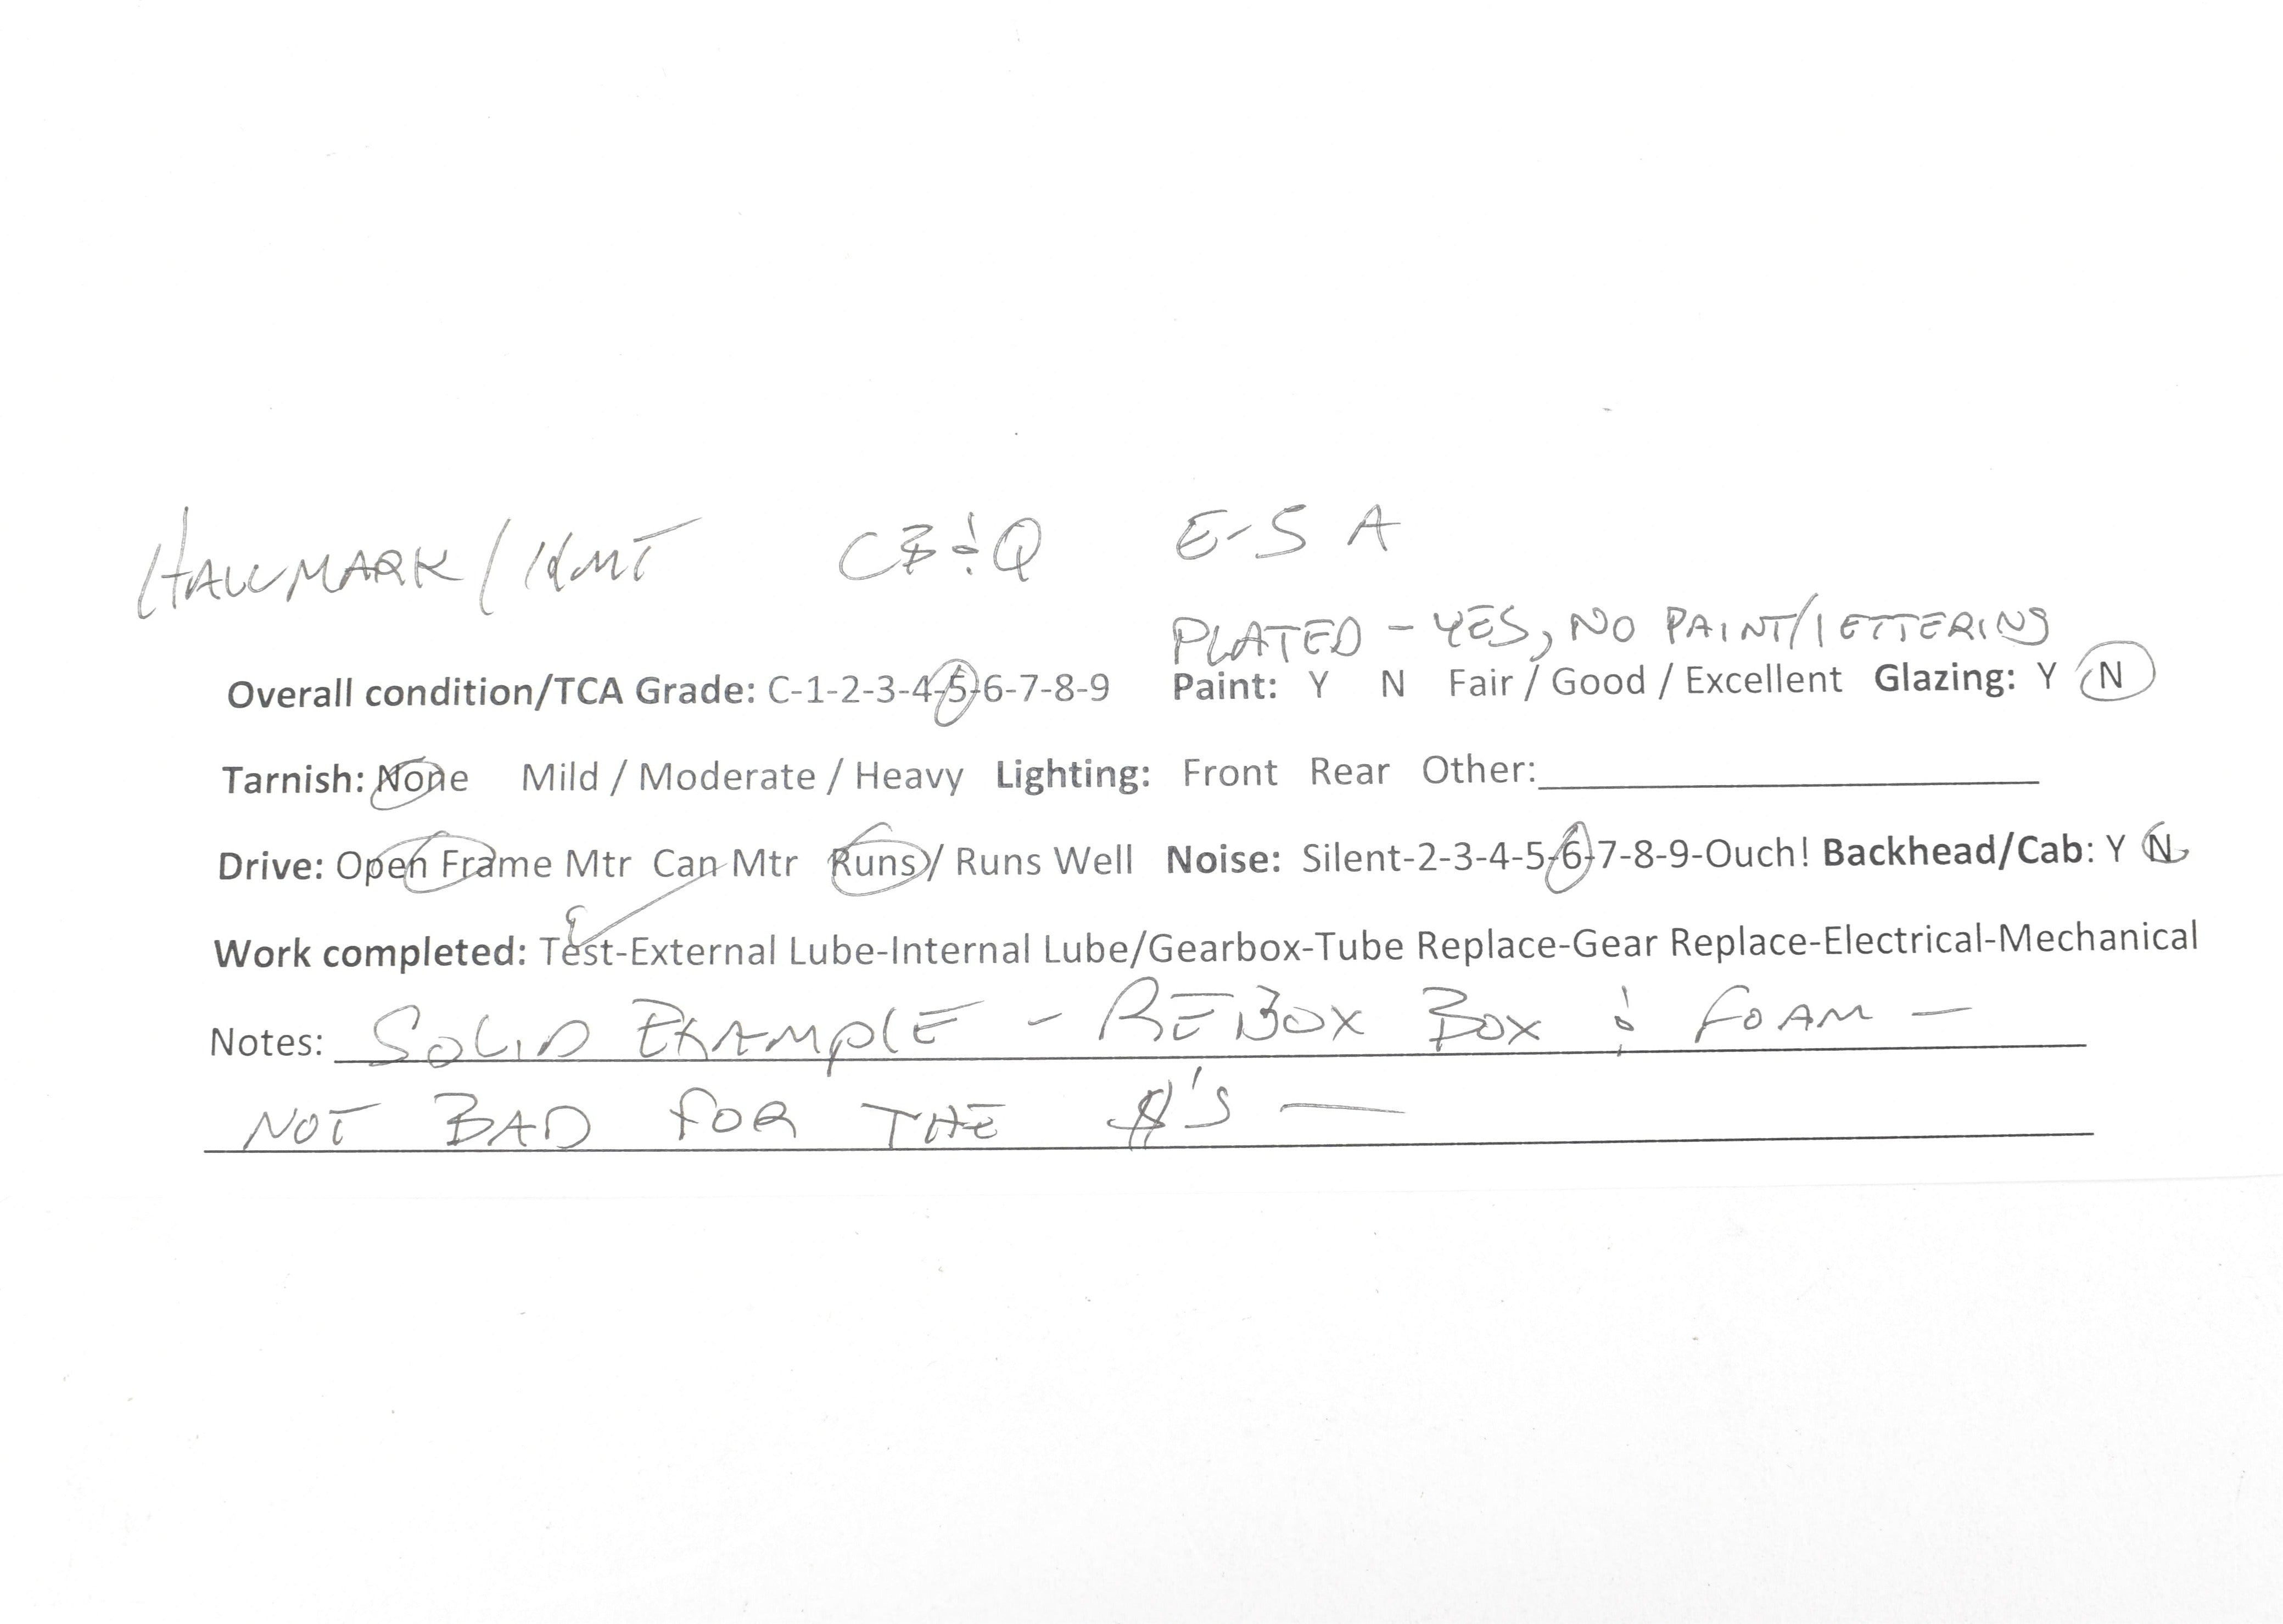 HALLMARK / KMT CB&Q E-5 A
PLATED - YES, NO PAINT/LETTERING
Overall condition/TCA Grade: C-1-2-3-4-5-6-7-8-9 Paint: Y N Fair / Good / Excellent Glazing: Y N
Tarnish: None Mild / Moderate / Heavy Lighting: Front Rear Other:
Drive: Open Frame Mtr Can Mtr Runs / Runs Well Noise: Silent-2-3-4-5-6-7-8-9-Ouch! Backhead/Cab: Y N
Work completed: Test-External Lube-Internal Lube/Gearbox-Tube Replace-Gear Replace-Electrical-Mechanical
Notes: SOLID EXAMPLE - REBOX BOX & FOAM -
NOT BAD FOR THE $'S -